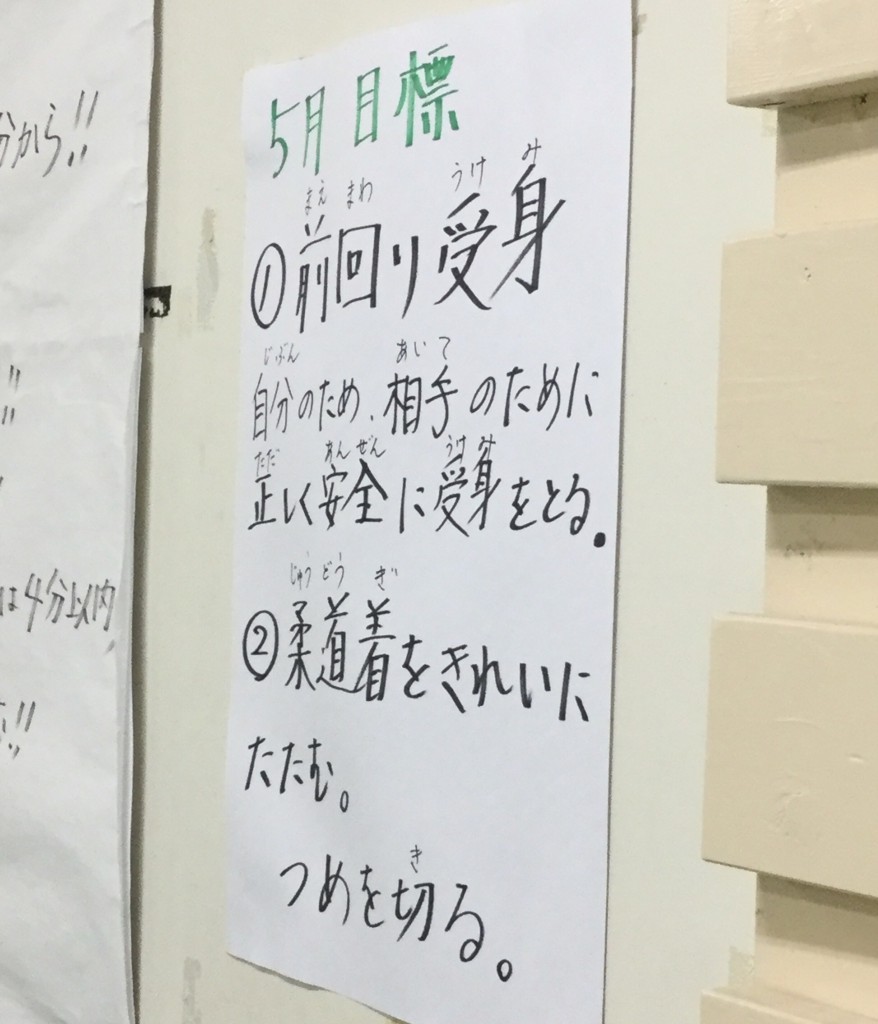 分から!!
は4分以内
!!
5月目標
まえ まわ うけ み
①前回り受身
じぶん あいて
自分のため、相手のために
ただ あんぜん うけみ
正しく安全に受身をとる。
じゅう どう ぎ
②柔道着をきれいに
たたむ。
き
つめを切る。